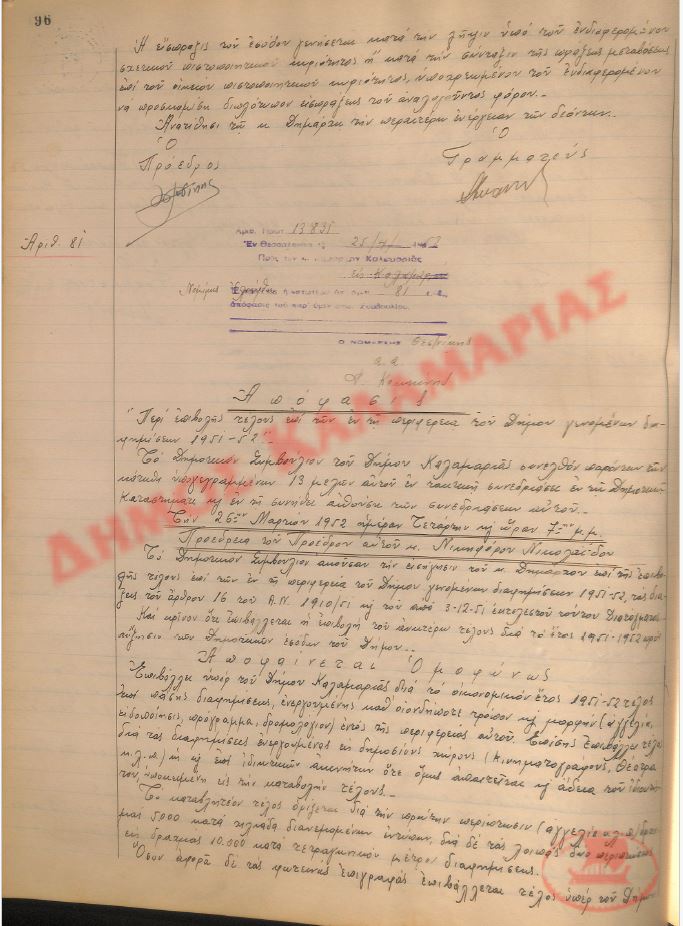 96
Ἡ εἴσπραξις τοῦ ἐσόδου γενήσεται κατὰ τὴν λῆψιν ὑπὸ τοῦ ἐνδιαφερομένου
σχετικοῦ πιστοποιητικοῦ κυριότητος ἢ κατὰ τὴν σύνταξιν τῆς πράξεως μεταβάσεως
ἐπὶ τοῦ οἰκείου πιστοποιητικοῦ κυριότητος, ὑποχρεωμένου τοῦ ἐνδιαφερομένου
νὰ προσκομίσῃ διπλότυπον εἰσπράξεως τοῦ ἀναλογοῦντος φόρου.-
Ἀνατίθησι τῷ κ. Δημάρχῳ τὴν περαιτέρω ἐνέργειαν τῶν δεόντων.-
Ὁ Ὁ
Πρόεδρος Γραμματεύς
Ἀριθ. 81
Ἀριθ. Πρωτ. 13835
Ἐν Θεσσαλονίκῃ τῇ 25/7/1952
Πρὸς τὸν κ. Δήμαρχον Καλαμαριᾶς
εἰς Καλαμαριὰν
ὑπ' ἀριθ. 81 ἀπόφασις τοῦ παρ' ὑμῖν Συμβουλίου.
Ὁ ΝΟΜΑΡΧΗΣ Θεσ/νίκης
α.α.
Ἀπόφασις
"Περὶ ἐπιβολῆς τέλους ἐπὶ τῶν ἐν τῇ περιφερείᾳ τοῦ Δήμου γενομένων δια-
φημίσεων 1951-52".-
Τὸ Δημοτικὸν Συμβούλιον τοῦ Δήμου Καλαμαριᾶς συνελθὸν παρόντων τῶν
κάτωθι ὑπογεγραμμένων 13 μελῶν αὐτοῦ ἐν τακτικῇ συνεδριάσει ἐν τῷ Δημοτικῷ
Καταστήματι κ ἐν τῇ συνήθει αἰθούσῃ τῶν συνεδριάσεων αὐτοῦ.-
Τὴν 26ην Μαρτίου 1952 ἡμέραν Τετάρτην κ ὥραν 7ην μ.μ.
Προεδρείᾳ τοῦ Προέδρου αὐτοῦ κ. Νικηφόρου Νικολαΐδου
Τὸ Δημοτικὸν Συμβούλιον ἀκοῦσαν τὴν εἰσήγησιν τοῦ κ. Δημάρχου ἐπὶ τῆς ἐπιβο-
λῆς τέλους ἐπὶ τῶν ἐν τῇ περιφερείᾳ τοῦ Δήμου γενομένων διαφημίσεων 1951-52, τὰς δια-
τάξεις τοῦ ἄρθρου 16 τοῦ Α.Ν. 1910/51 κ τοῦ ἀπὸ 3-12-51 ἐκτελεστοῦ τούτου Διατάγματος
Καὶ κρῖνον ὅτι ἐπιβάλλεται ἡ ἐπιβολὴ τοῦ ἀνωτέρω τέλους διὰ τὸ ἔτος 1951-1952 πρὸς
αὔξησιν τῶν Δημοτικῶν ἐσόδων τοῦ Δήμου.-
Ἀποφαίνεται Ὁμοφώνως
Ἐπιβάλλει ὑπὲρ τοῦ Δήμου Καλαμαριᾶς διὰ τὸ οἰκονομικὸν ἔτος 1951-52 τέλος
ἐπὶ πάσης διαφημίσεως, ἐνεργουμένης καθ' οἱονδήποτε τρόπον κ μορφὴν (ἀγγελία,
εἰδοποίησις, πρόγραμμα, δρομολόγιον) ἐντὸς τῆς περιφερείας αὐτοῦ. Ἐπίσης ἐπιβάλλει τέλος
διὰ τὰς διαφημίσεις ἐνεργουμένας εἰς δημοσίους χώρους (κινηματογράφους, θέατρα
κ.λ.π.) ἢ κ ἐπὶ ἰδιωτικῶν ἀκινήτων ὅτε ὅμως ἀπαιτεῖται κ ἄδεια τοῦ ἰδιοκτή-
του, ὑποκειμένη εἰς τὴν καταβολὴν τέλους.-
Τὸ καταβλητέον τέλος ὁρίζεται διὰ τὴν πρώτην περίπτωσιν (ἀγγελία κ.λ.π.) δραχ-
μὰς 5.000 κατὰ χιλιάδα διανεμομένων ἐντύπων, διὰ δὲ τὰς λοιπὰς δύο περιπτώσεις
εἰς δραχμὰς 10.000 κατὰ τετραγωνικὸν μέτρον διαφημίσεως.-
Ὅσον ἀφορᾷ δὲ τὰς φωτεινὰς ἐπιγραφὰς ἐπιβάλλεται τέλος ὑπὲρ τοῦ Δήμου
ΔΗΜΟΣ ΚΑΛΑΜΑΡΙΑΣ